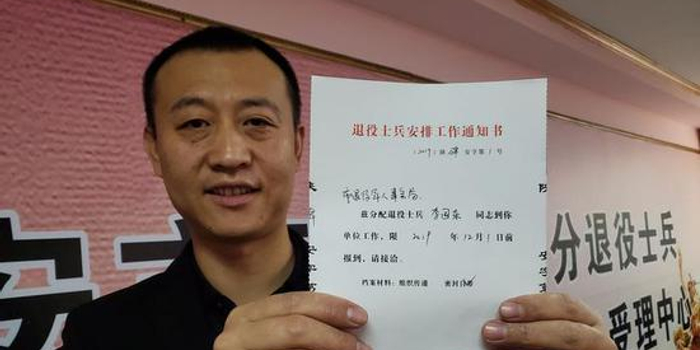 退役士兵安排工作通知书
(2019) 安字第 1 号
市退役军人事务局
兹分配退役士兵 李国栋 同志到你
单位工作,限 2019 年 12 月 1 日前
报到,请接洽.
档案材料:组织传递 密封
分退役士兵
受理中心